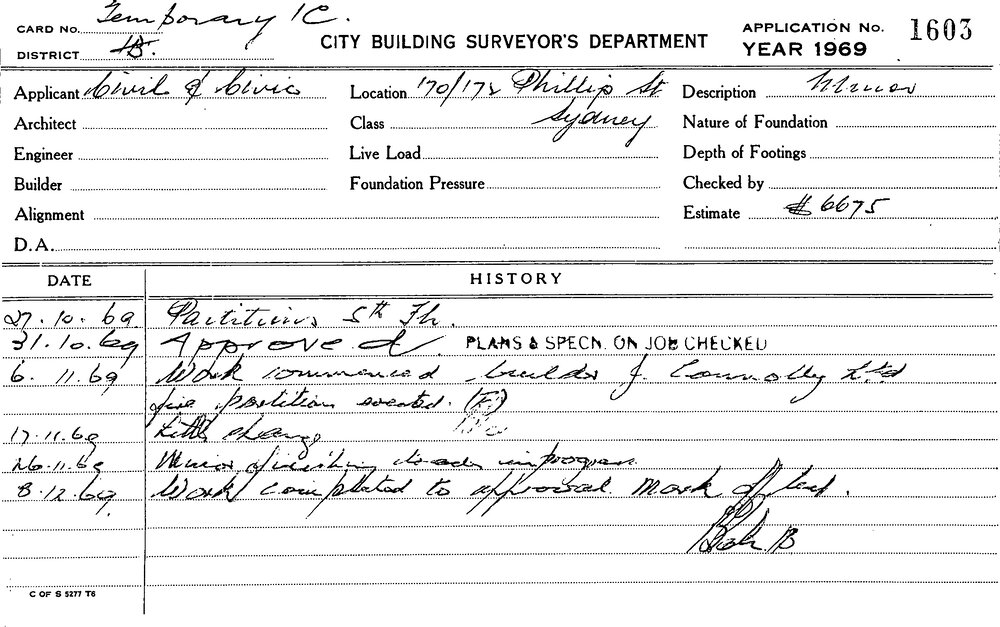 CARD No. Temporary 1C.
DISTRICT B.
CITY BUILDING SURVEYOR'S DEPARTMENT
APPLICATION No. 1603
YEAR 1969
Applicant Civil & Civic
Location 170/172 Phillip St
Sydney
Description Minor
Architect
Class
Nature of Foundation
Engineer
Live Load
Depth of Footings
Builder
Foundation Pressure
Checked by
Alignment
Estimate $6675
D.A.
DATE
HISTORY
27.10.69 Partitions 5th Flr.
31.10.69 Approved. PLANS & SPECN. ON JOB CHECKED
6.11.69 Work commenced builder J. Connolly Ltd
partition erected.
17.11.69 Little change
26.11.69 Minor finishing in progress.
8.12.69 Work completed to approval. Mark off card.
C OF S 5277 T6